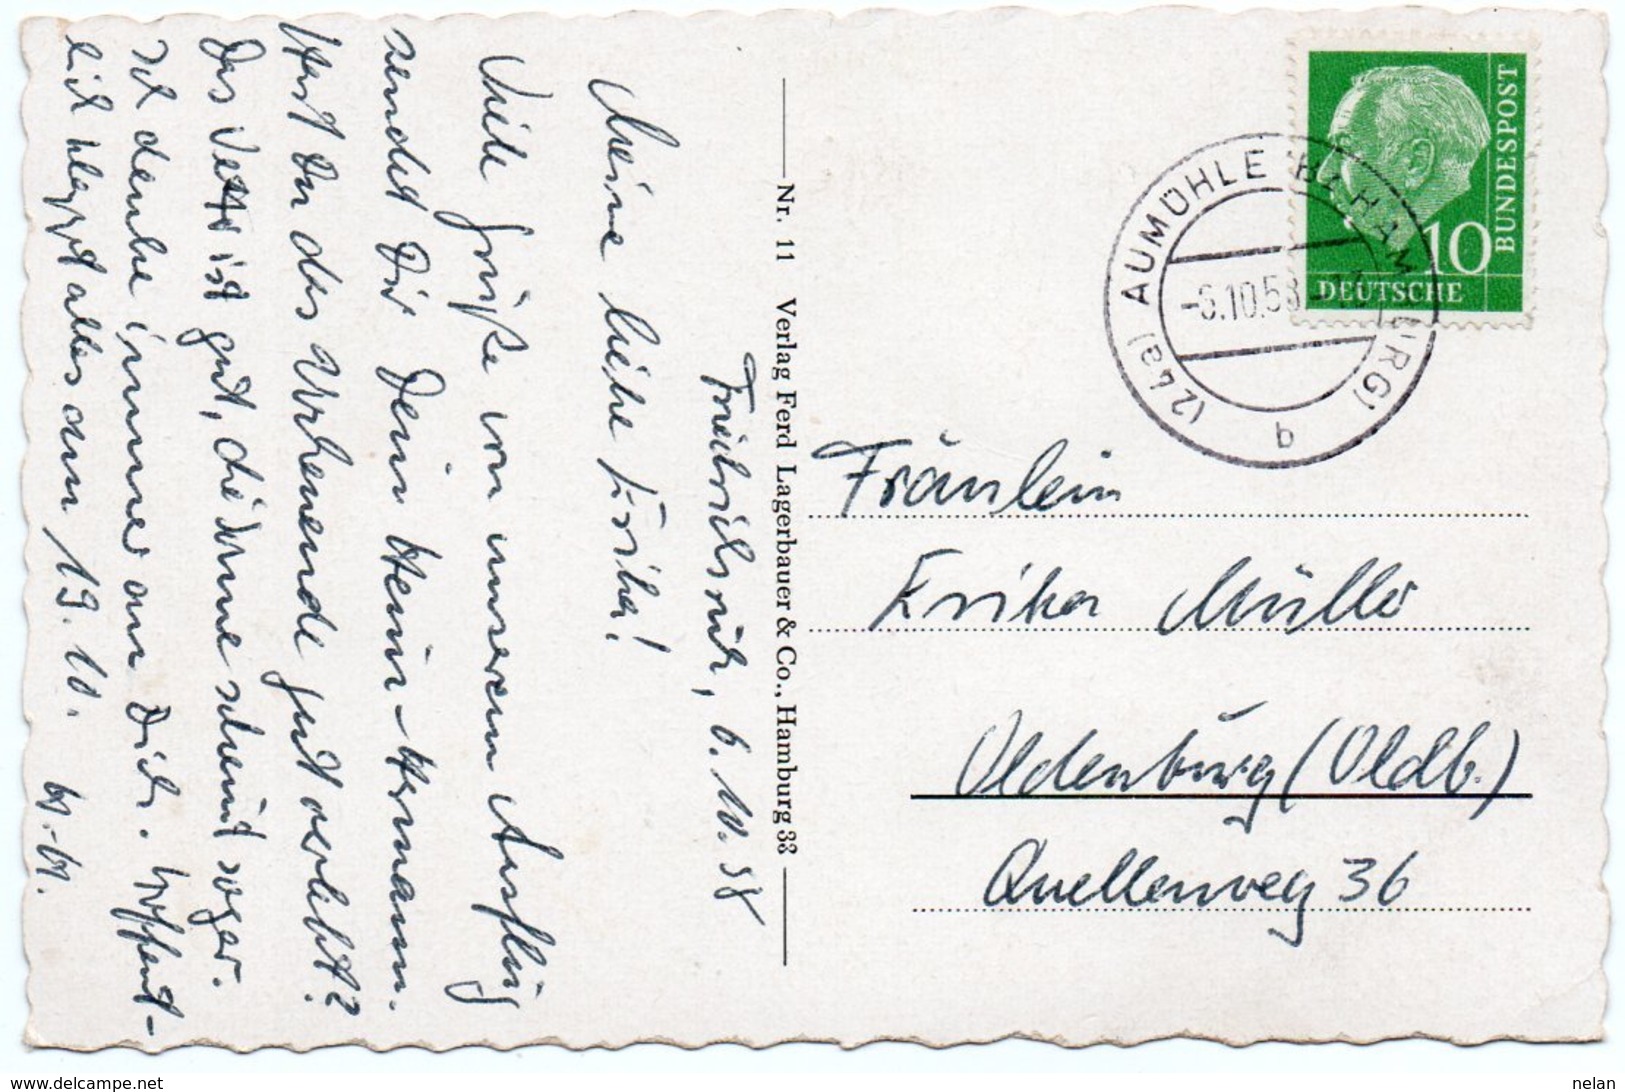 Friedrichsruh, 6.10.58
Meine liebe Erika!
Viele Grüße von unserem Ausflug
sendet Dir Dein Heini-Hermann.
Hast Du das Wochenende gut verlebt?
Das Wetter ist gut, die Sonne scheint sogar.
Ich denke immer an Dich. Hoffent-
lich klappt alles am 19.10.
Nr. 11 Verlag Ferd Lagerbauer & Co., Hamburg 33
DEUTSCHE
BUNDESPOST
10
(24a) AUMÜHLE (BZ. HAMBURG)
-6.10.58
b
Fräulein
Erika Müller
Oldenburg (Oldb.)
Quellenweg 36
www.delcampe.net
nelan